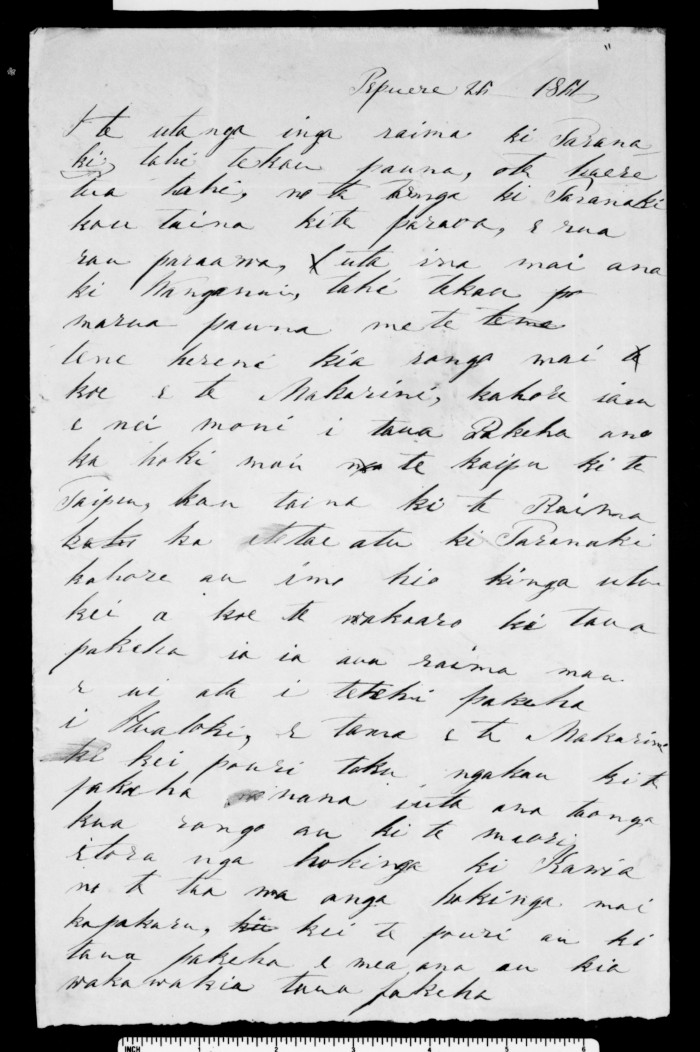 Pepuere 25 1851
I te utanga inga raima ki Tarana
ki, tahi tekau pauna, ote kuere
tua tahi, no te tonga ki Taranaki
kau taina kite paraoa, e rua
rau paraawa, uta ina mai ana
ki Wanganui, tahi tekau po
marua pauna mete teme
tene herene kia rongo mai
koe e te Makarini, kahore iaau
e nei moni i taua Pakeha ano
ka hoki mai te kaipu ki te
Taipu, kau taina ki te Raima
ka tae atu ki Taranaki
kahore au imo hio kinga utu
kei a koe te wakaaro ki taua
pakeha ia ia aua raima mau
e ui atu i tetehi pakeha
i Huatoki, e tama e te Makarini
ki kei pouri toku ngakau kite
pakeha nana iuta ana taonga
kua rongo au ki te maori
etoru nga hokinga ki Kawia
no te tua wa anga hokinga mai
kapakaru, kei te pouri au ki
taua pakeha e mea ana au kia
wakawakia taua pakeha
INCH 1 2 3 4 5 6